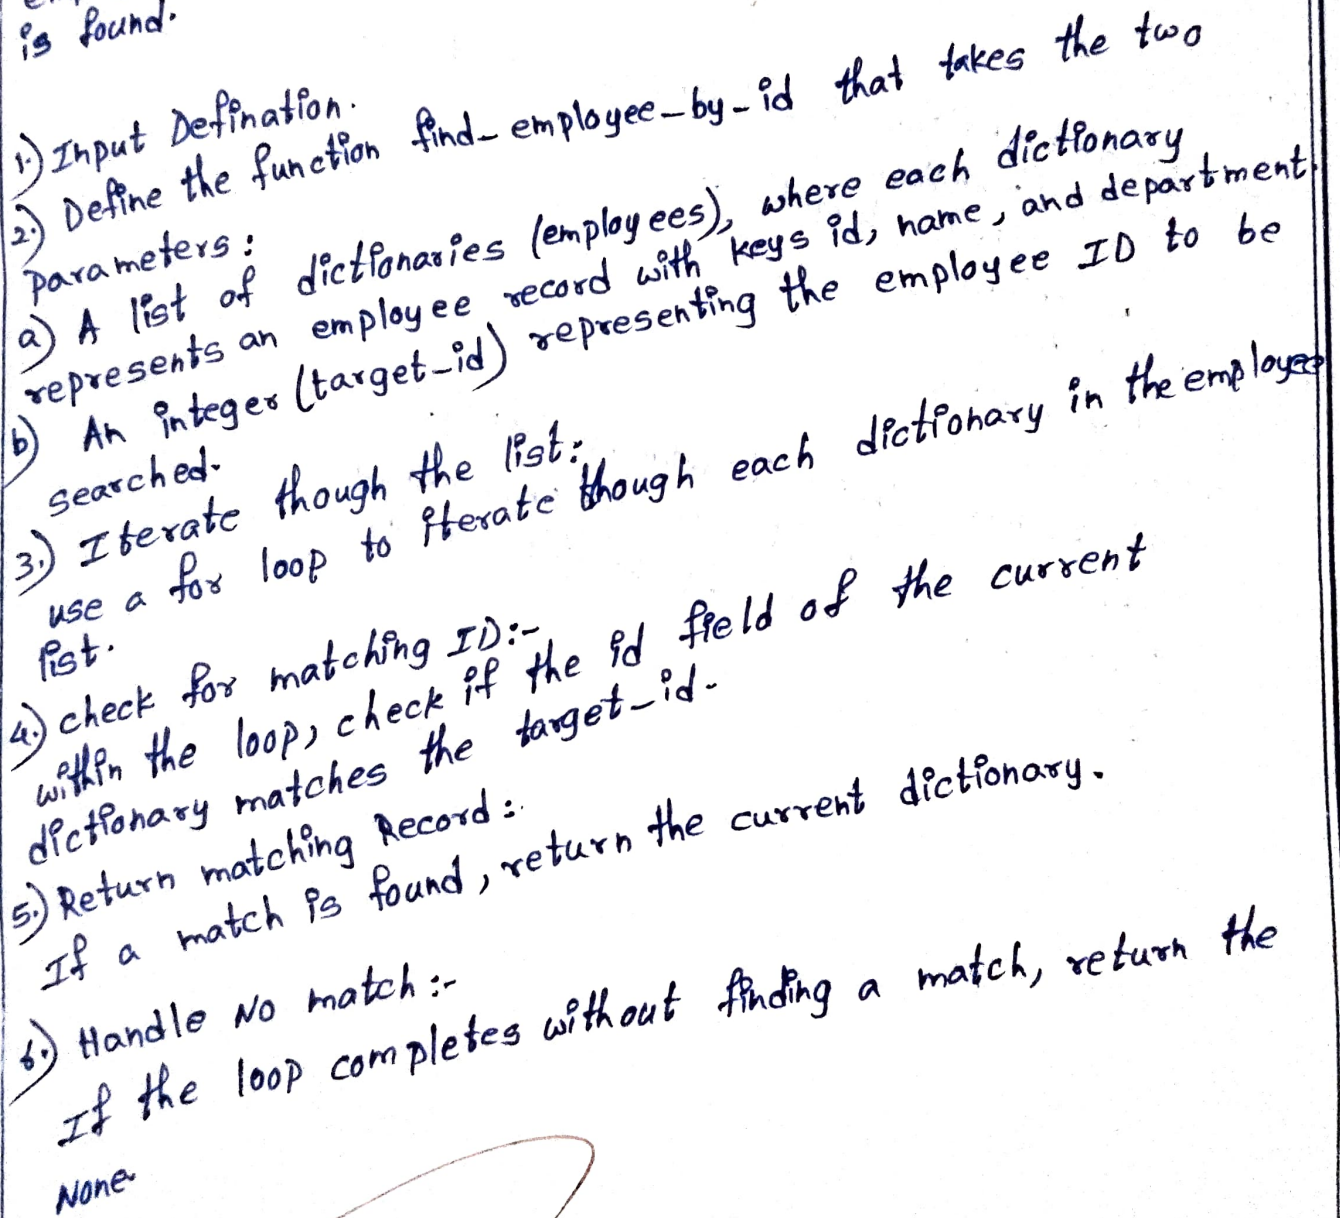 is found.
1.) Input Defination.
2.) Define the function find_employee_by_id that takes the two
parameters :
a) A list of dictionaries (employees), where each dictionary
represents an employee record with keys id, name, and department
b) An integer (target_id) representing the employee ID to be
searched.
3.) Iterate though the list:
use a for loop to iterate though each dictionary in the employee
list.
4.) check for matching ID:-
within the loop, check if the id field of the current
dictionary matches the target_id.
5.) Return matching Record :
If a match is found, return the current dictionary.
6.) Handle No match :-
If the loop completes without finding a match, return the
None